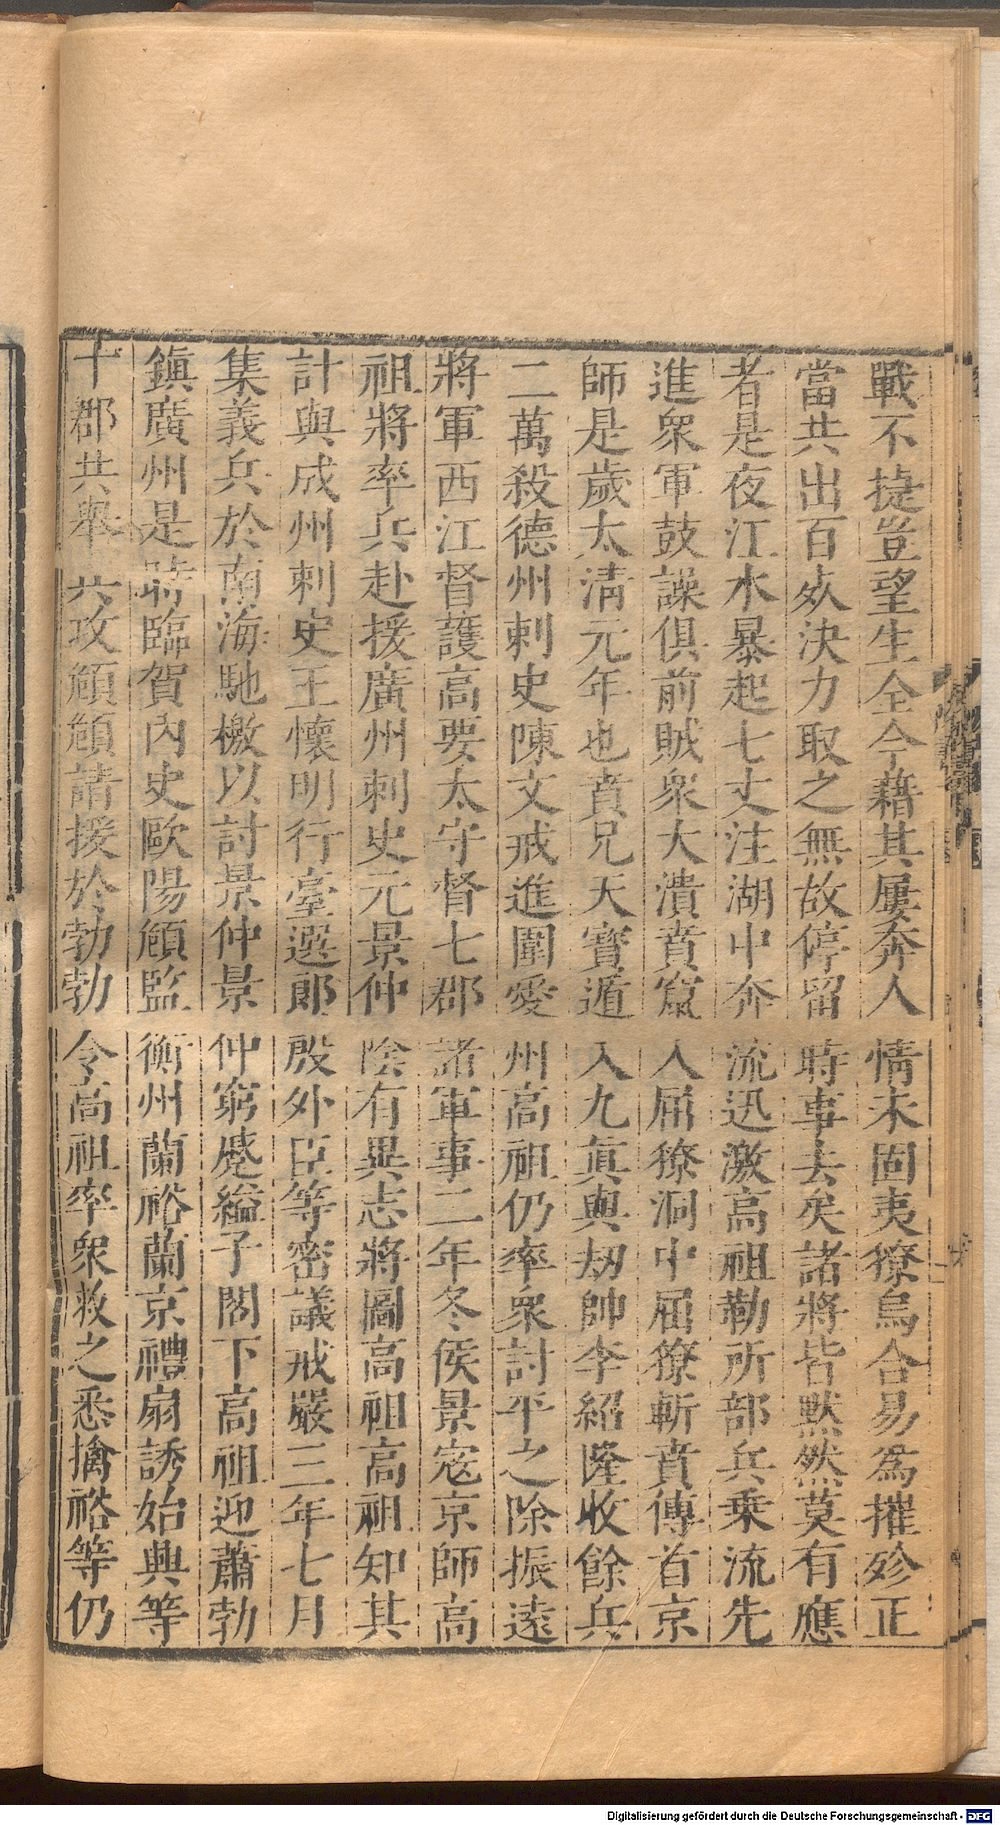 戰不捷豈望生全今藉其屢奔人情未固夷獠烏合易為摧殄正
當共出百死決力取之無故停留時事去矣諸將皆默然莫有應
者是夜江水暴起七丈注湖中奔流迅激高祖勒所部兵乗流先
進眾軍鼓譟俱前賊眾大潰賁竄入屈獠洞中屈獠斬賁傳首京
師是歲太清元年也賁兄天寶遁入九眞與劫帥李紹隆收餘兵
二萬殺德州刺史陳文戒進圍愛州高祖仍率眾討平之除振遠
將軍西江督護高要太守督七郡諸軍事二年冬侯景寇京師高
祖將率兵赴援廣州刺史元景仲陰有異志將圖高祖高祖知其
計與成州刺史王懷明行臺選郎殷外臣等密議戒嚴三年七月
集義兵於南海馳檄以討景仲景仲窮蹙縊于閣下高祖迎蕭勃
鎮廣州是時臨賀內史歐陽頠監衡州蘭裕蘭京禮扇誘始興等
十郡共舉兵攻頠頠請援於勃勃令高祖率眾救之悉擒裕等仍
Digitalisierung gefördert durch die Deutsche Forschungsgemeinschaft - DFG